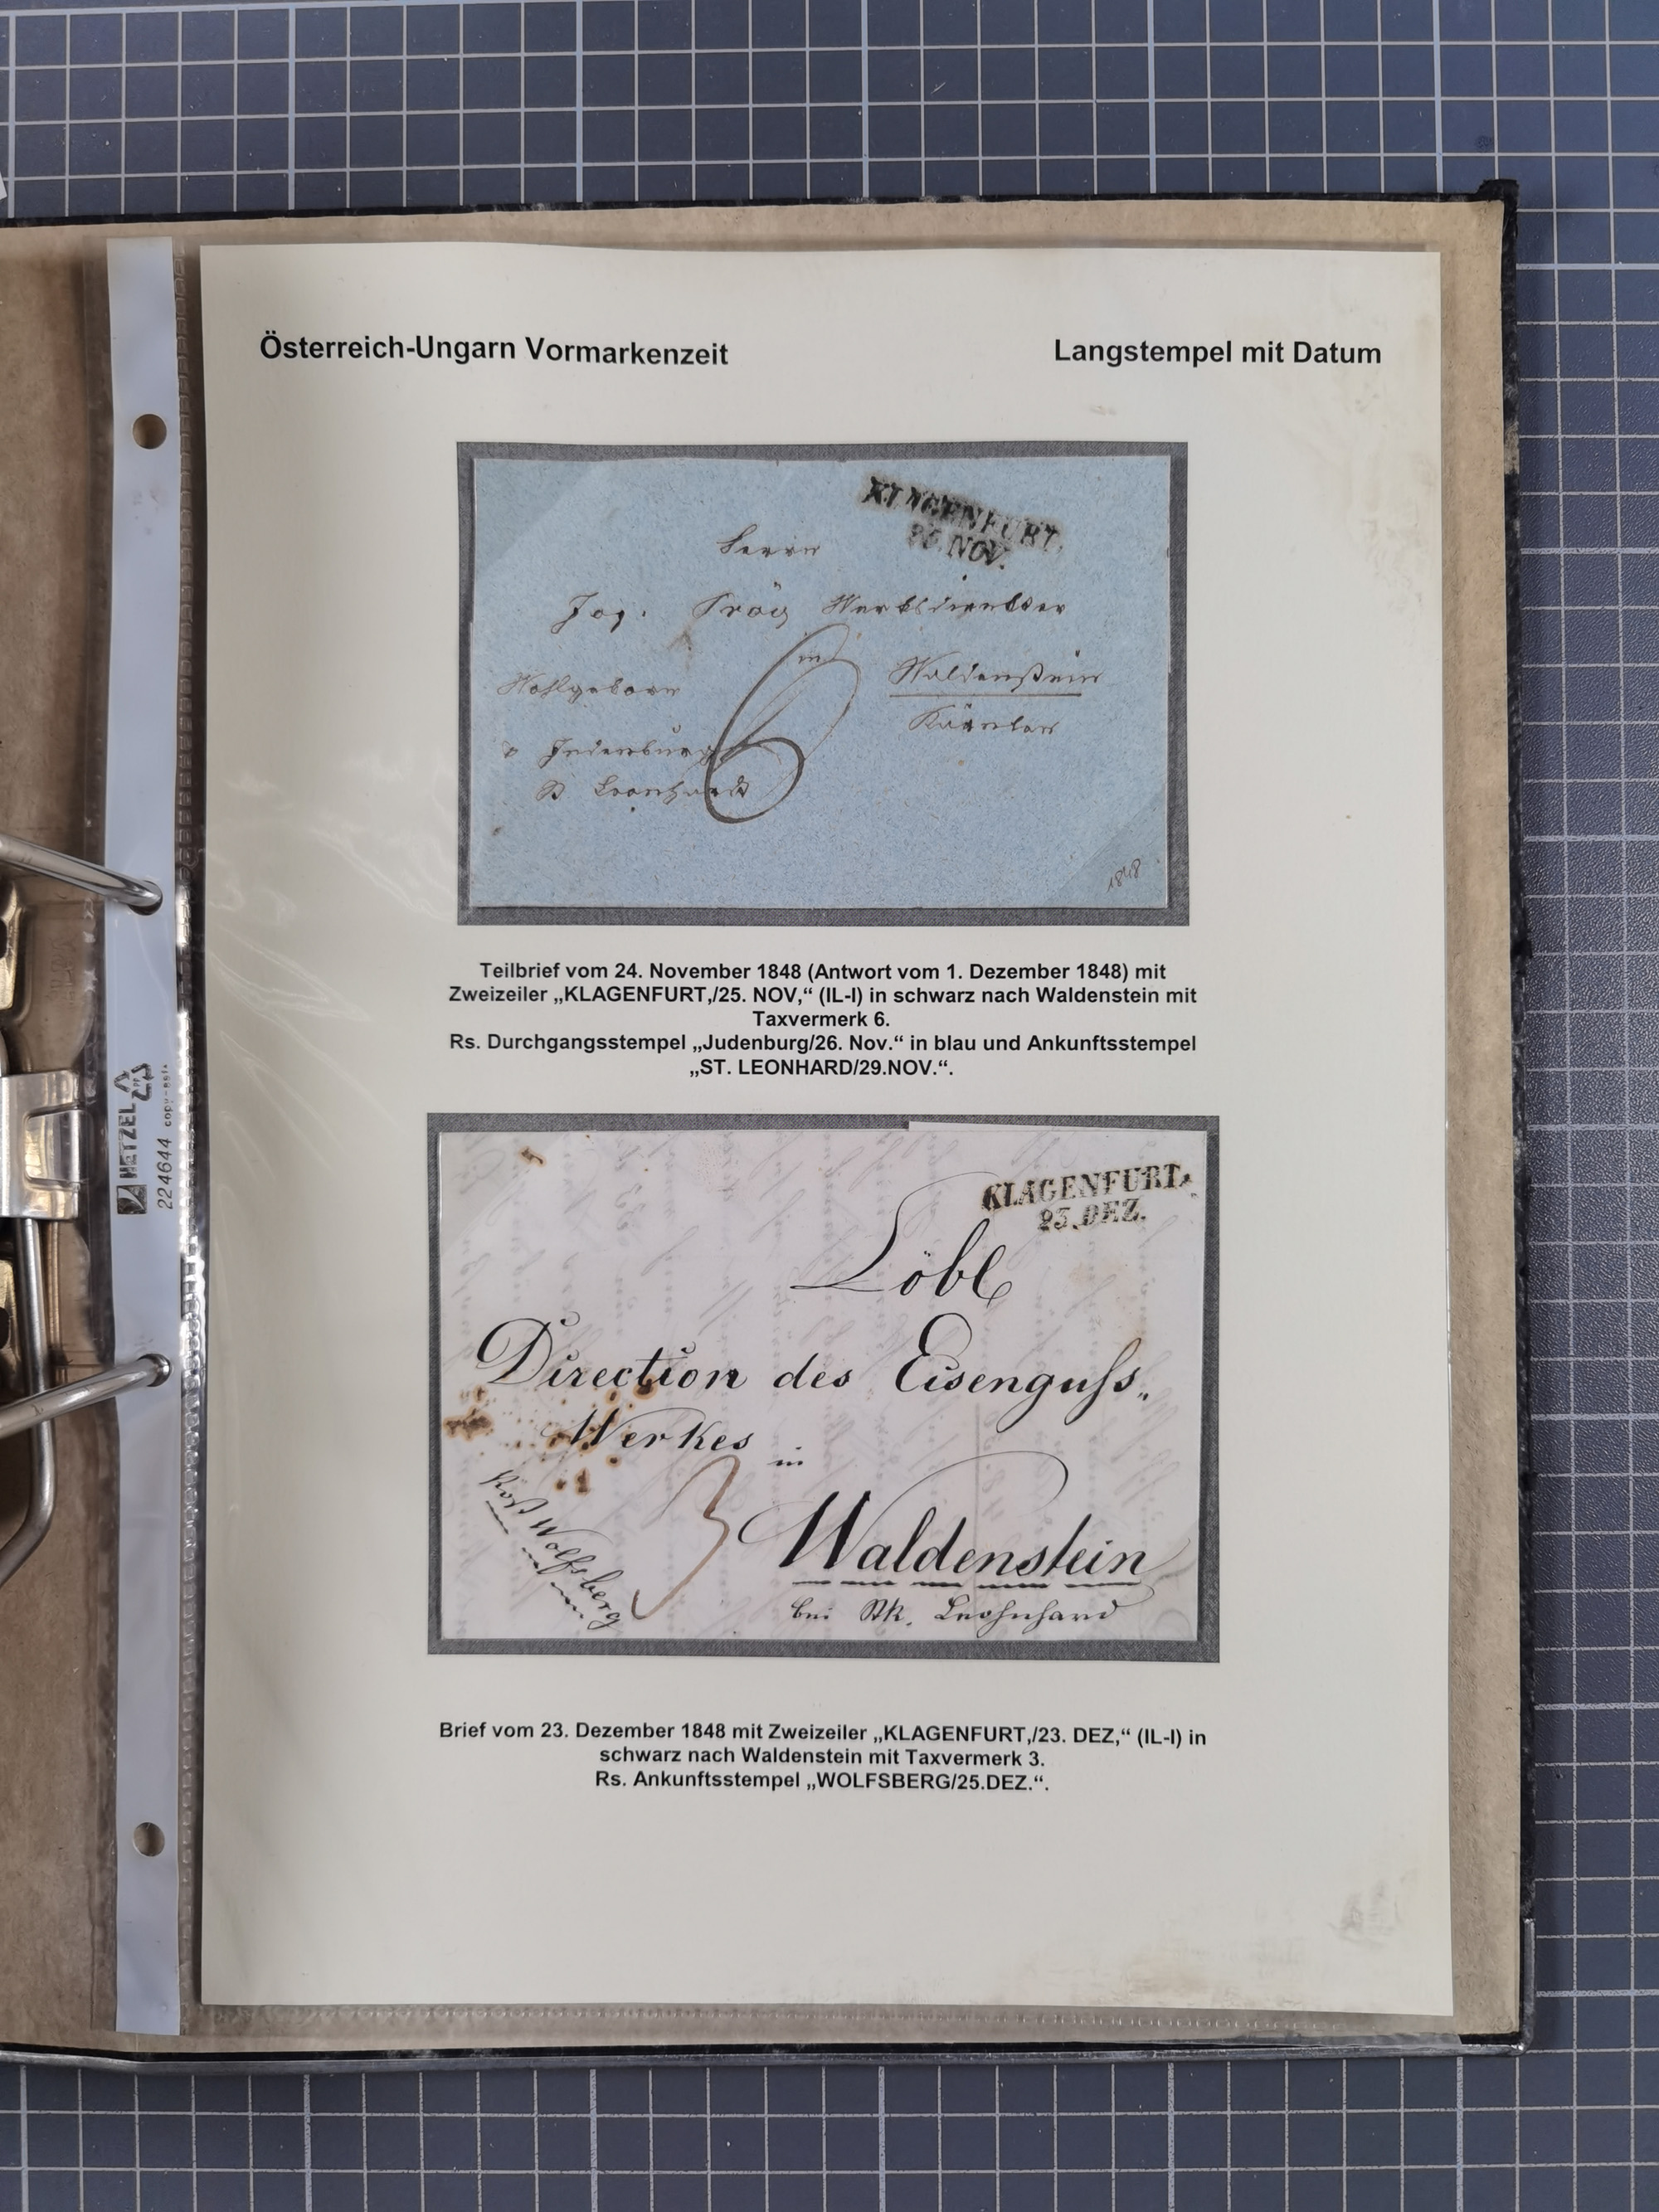 Österreich-Ungarn Vormarkenzeit
Langstempel mit Datum
KLAGENFURT,
25. NOV.
Herrn
Jos. Prög Werksdirektor
in
Waldenstein
Wohlgeborn
Kärnten
Judenburg
St Leonhard
6
1848
Teilbrief vom 24. November 1848 (Antwort vom 1. Dezember 1848) mit
Zweizeiler „KLAGENFURT,/25. NOV,“ (IL-I) in schwarz nach Waldenstein mit
Taxvermerk 6.
Rs. Durchgangsstempel „Judenburg/26. Nov.“ in blau und Ankunftsstempel
„ST. LEONHARD/29.NOV.“.
KLAGENFURT,
23. DEZ.
Löbl
Direction des Eisenguſs„
Werkes
in
3
Waldenstein
Post Wolfsberg
bei Skt. Leohnhard
Brief vom 23. Dezember 1848 mit Zweizeiler „KLAGENFURT,/23. DEZ,“ (IL-I) in
schwarz nach Waldenstein mit Taxvermerk 3.
Rs. Ankunftsstempel „WOLFSBERG/25.DEZ.“.
HETZEL
224644 copy-safe